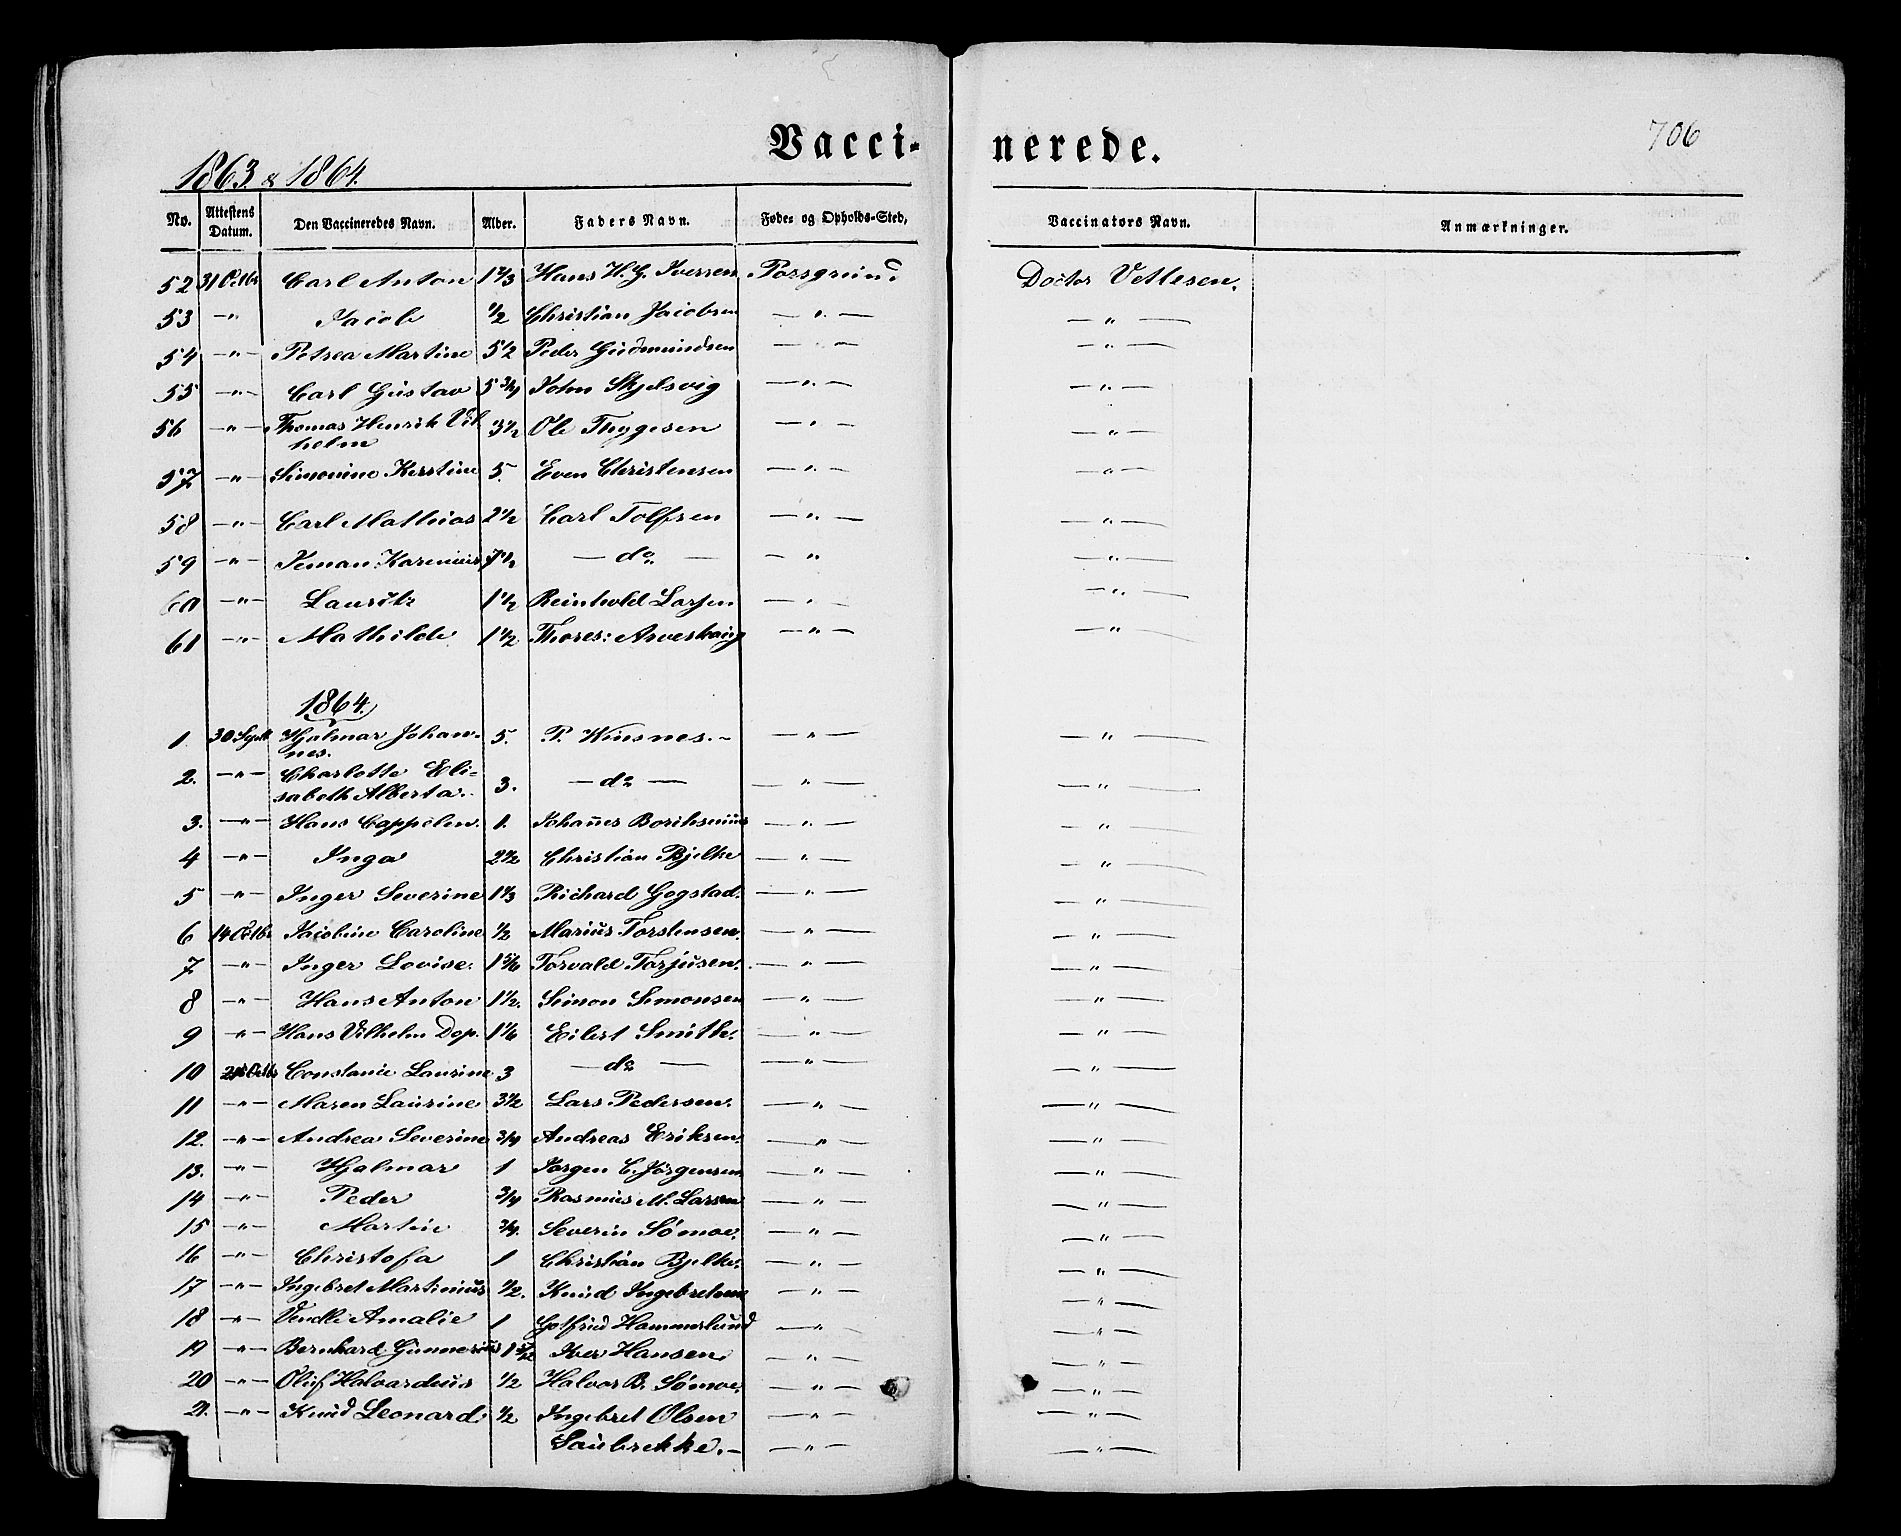 Vacci- nerede.
706
1863 & 1864.
No. Attestens Datum. Den Vaccineredes Navn. Alder. Faders Navn. Føde- og Opholds-Sted, Vaccinators Navn. Anmærkninger.
52 31 Octbr Carl Anton 1 2/3 Hans H. G. Iversen Porsgrund. Doctor Vetlesen.
53 —"— Jacob 1/2 Christian Jacobsen —"— —"—
54 —"— Petrea Martine 5 1/2 Peder Gudmundsen —"— —"—
55 —"— Carl Gustav 5 3/4 John Skjelsvig —"— —"—
56 —"— Thomas Henrik Vil- 3 1/2 Ole Thygesen —"— —"—
helm
57 —"— Simonine Kirstine 5. Even Christensen —"— —"—
58 —"— Carl Mathias 2 1/2 Carl Tolfsen —"— —"—
59 —"— Karenius 1/2 —do— —"— —"—
60 —"— Lauritz 1 1/2 Reinhold Larsen —"— —"—
61 —"— Mathilde 1 1/2 Thores: —"— —"—
1864.
1. 30 Septb Hjalmar Johan- 5. P. Winsnes.- —"— —"—
nes.
2. —"— Charlotte Eli- 3. —do— —"— —"—
sabeth Alberta.
3. —"— Hans Cappelen. 1. Johannes —"— —"—
4 —"— Inga 2 1/2 Christian Bjelke —"— —"—
5 —"— Inger Severine 1 1/3 Richard Gogstad. —"— —"—
6 14 Octbr Jacobine Caroline 1/2 Marius Torstensen. —"— —"—
7 —"— Inger Lovise. 1 5/6 Torvald Torjusen. —"— —"—
8 —"— Hans Anton 1 1/2. Simon Simonsen —"— —"—
9 —"— Hans Vilhelm Dop. 1 1/6 Eilert Smith. —"— —"—
10 Octbr Constanie Laurine 3 —do— —"— —"—
11 —"— Maren Laurine 3 1/2 Lars Pedersen. —"— —"—
12. —"— Andrea Severine 3/4 Andreas Eriksen. —"— —"—
13. —"— Hjalmar 1 Jørgen C. Jørgensen —"— —"—
14 —"— Peder 3/4 Rasmus M. Larsen —"— —"—
15 —"— Martin 3/4. Severin Sømoe. —"— —"—
16 —"— Christofa 1 Christian Bjelke. —"— —"—
17 —"— Ingebret Martinius 1/2. Knud Ingebretsen —"— —"—
18 —"— Vendli Amalie 1 Gotfried Hammerlund —"— —"—
19 —"— Bernhard Gunnerius Iver Hansen. —"— —"—
20 —"— Oluf Halvardius 1/2 Halvor B. Sømoe. —"— —"—
21. —"— Knud Leonard. 1/2 Ingebret Olsen —"— —"—
Saubrekke.- —"— —"—